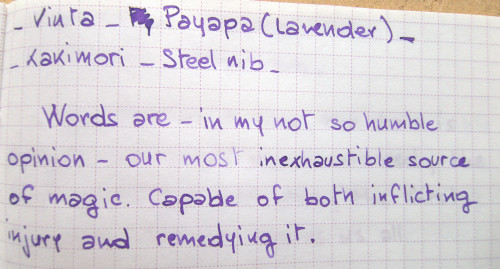 - Vinta - Payapa (Lavender) -
- Kakimori - Steel nib -
Words are - in my not so humble
opinion - our most inexhaustible source
of magic. Capable of both inflicting
injury and remedying it.